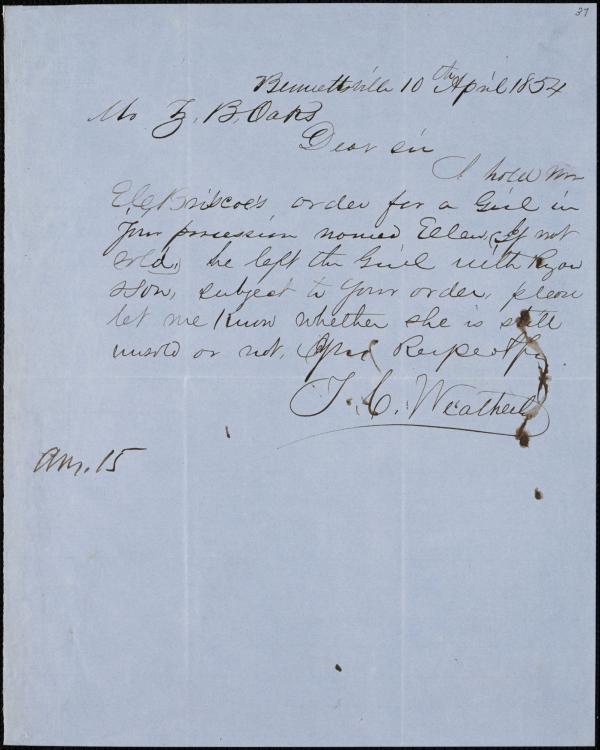 37
Bennettsville 10th April 1854
Mr Z. B. Oaks
Dear sir
I hold Mr
Briscoe's order for a Girl in
your possession named Ellen, (If not
sold) he left the Girl with Ryan
& Son, subject to your order, please
let me know whether she is still
unsold or not. Respectfy
T. C. Weatherly
Ans. 15